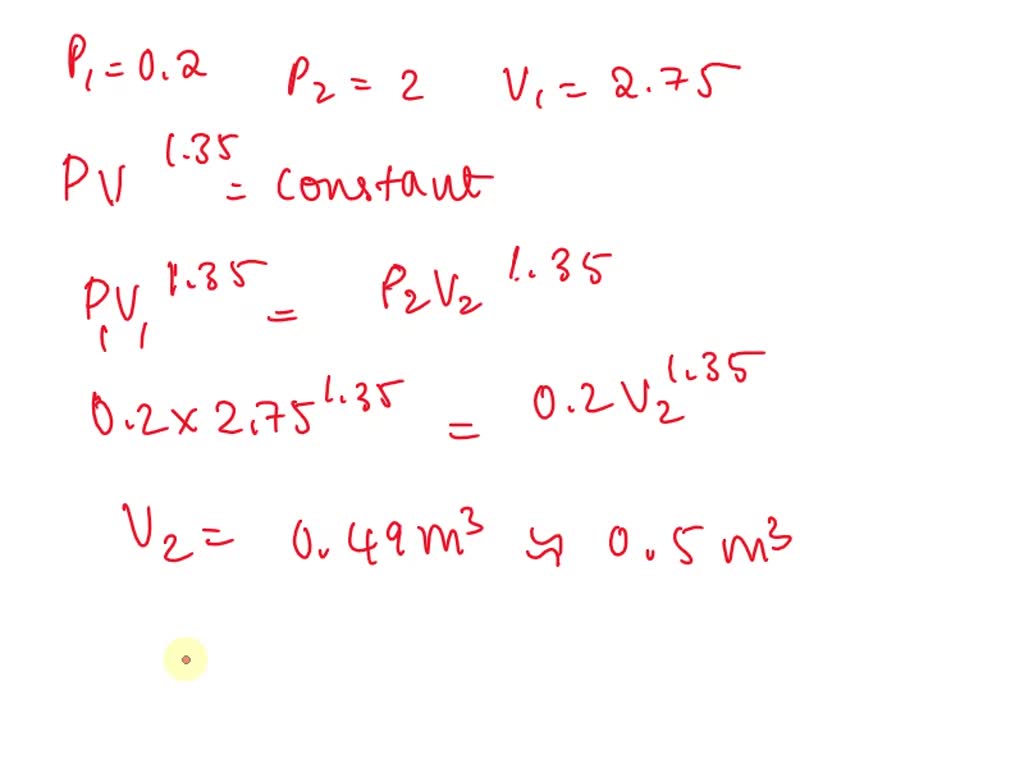 P₁ = 0.2 P₂ = 2 V₁ = 2.75
PV^1.35 = constant
P₁V₁^1.35 = P₂V₂^1.35
0.2 × 2.75^1.35 = 0.2 V₂^1.35
V₂ = 0.49 m³ ≈ 0.5 m³